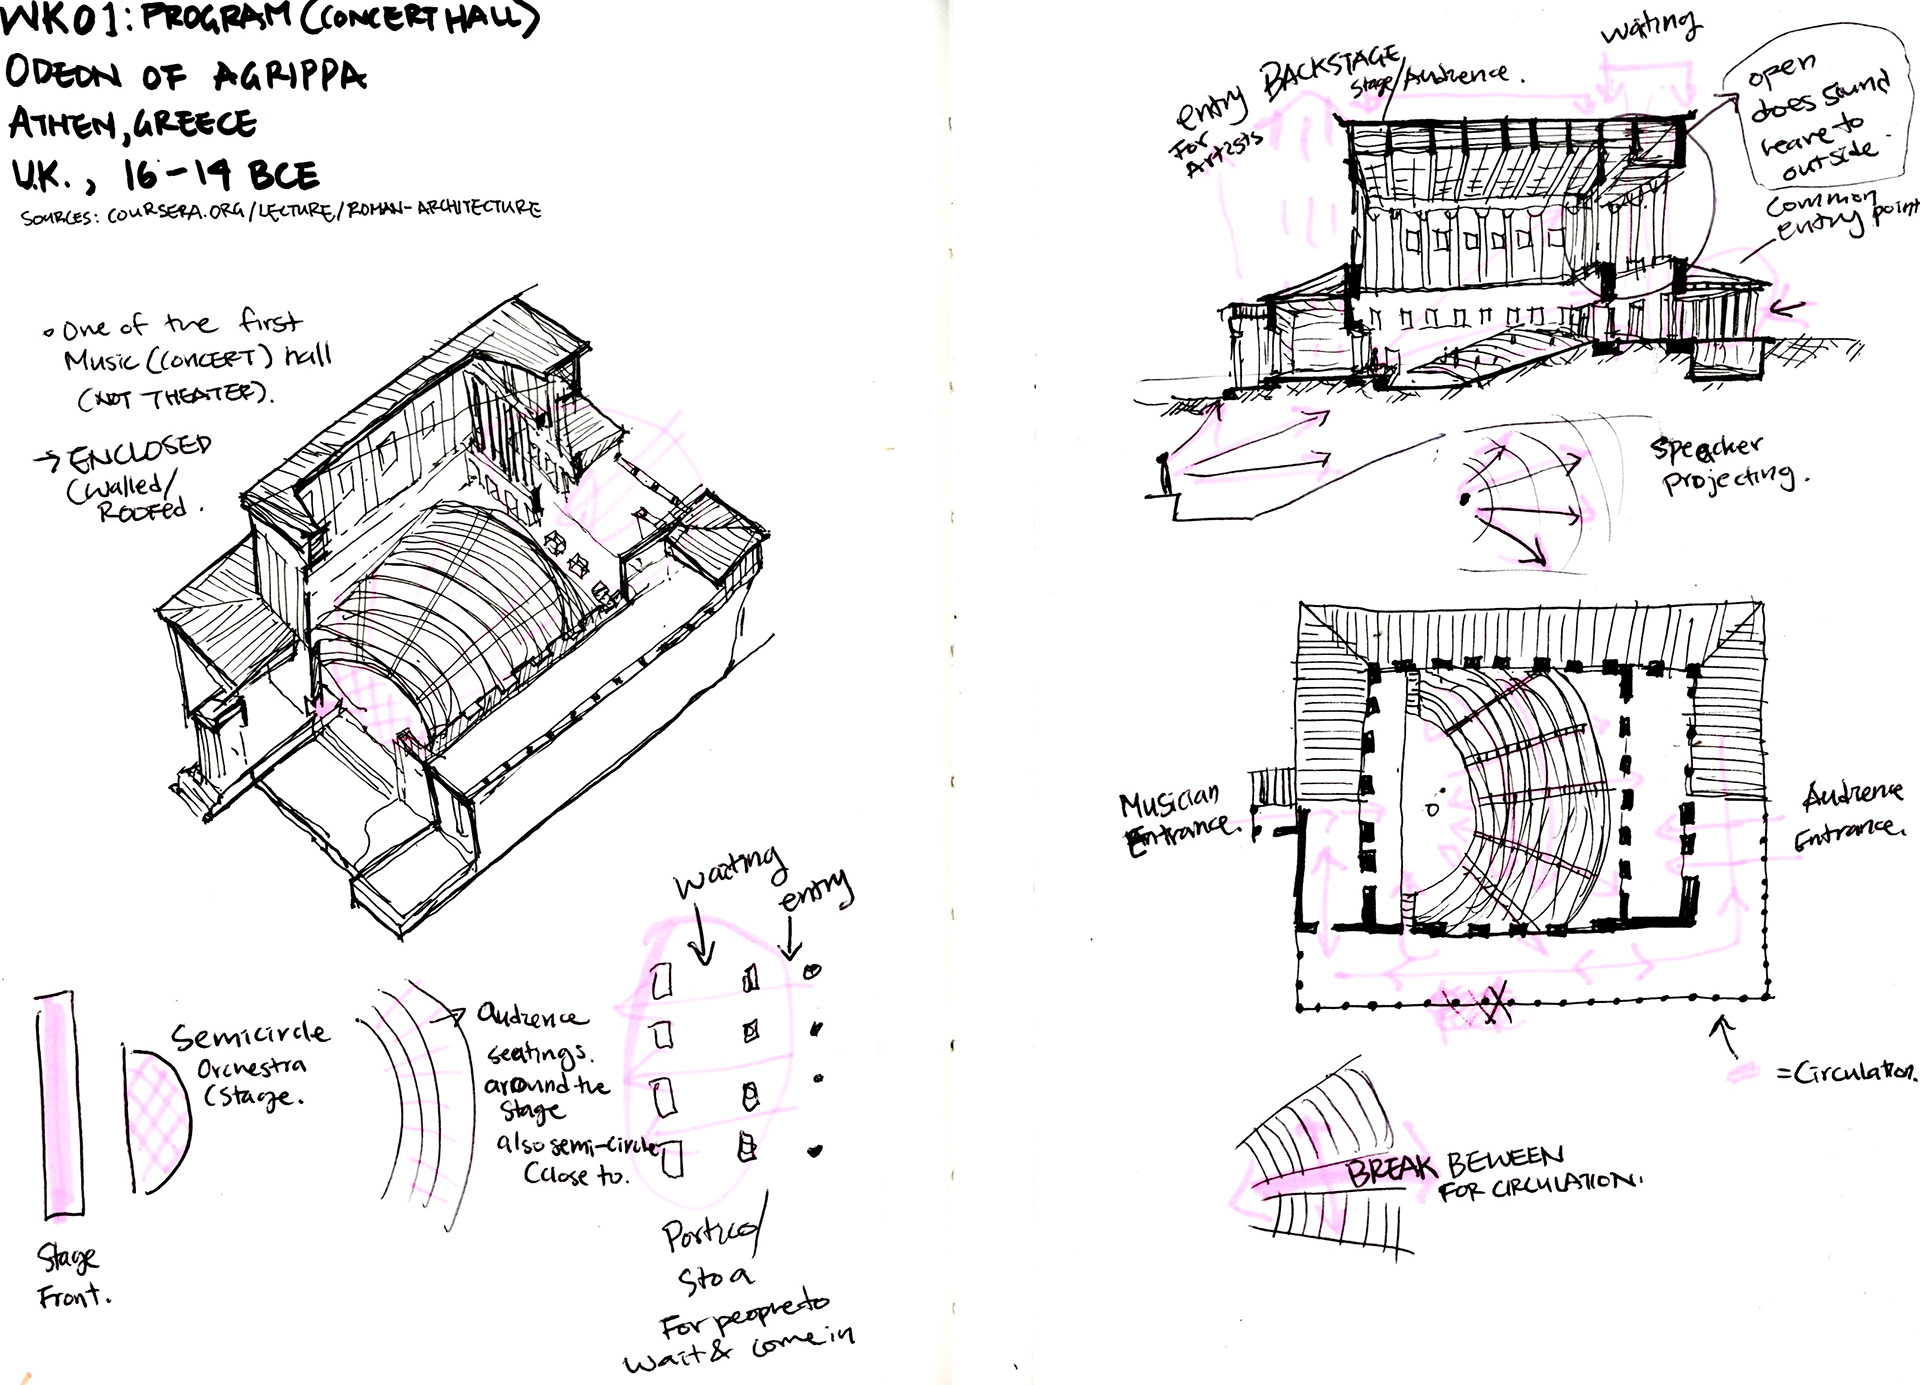 WK01: PROGRAM (CONCERT HALL)
ODEON OF AGRIPPA
ATHEN, GREECE
U.K., 16-14 BCE
SOURCES: COURSERA.ORG/LECTURE/ROMAN-ARCHITECTURE
One of the first
Music (CONCERT) hall
(NOT THEATER).
→ ENCLOSED
(Walled/
ROOFed.
Waiting
entry
Semicircle
Orchestra
(Stage.
Audience
seatings.
around the
Stage
also semi-circle
(close to.
Stage
Front.
Portico/
Stoa
For people to
wait & come in
entry
For
Artists
BACKSTAGE
Stage/Audience.
Waiting
open
does sound
leave to
outside.
Common
entry point
Speacker
projecting.
Musician
Entrance.
Audience
Entrance.
= Circulation.
BREAK BEWEEN
FOR CIRCULATION.